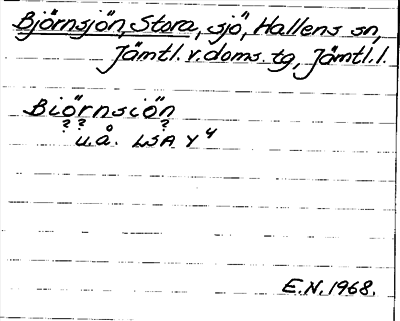 Björnsjön, Stora, sjö, Hallens sn,
Jämtl. v. doms. tg, Jämtl. l.
Biörnsiön
? ? ?
u.å. LSA Y 4
E.N. 1968.